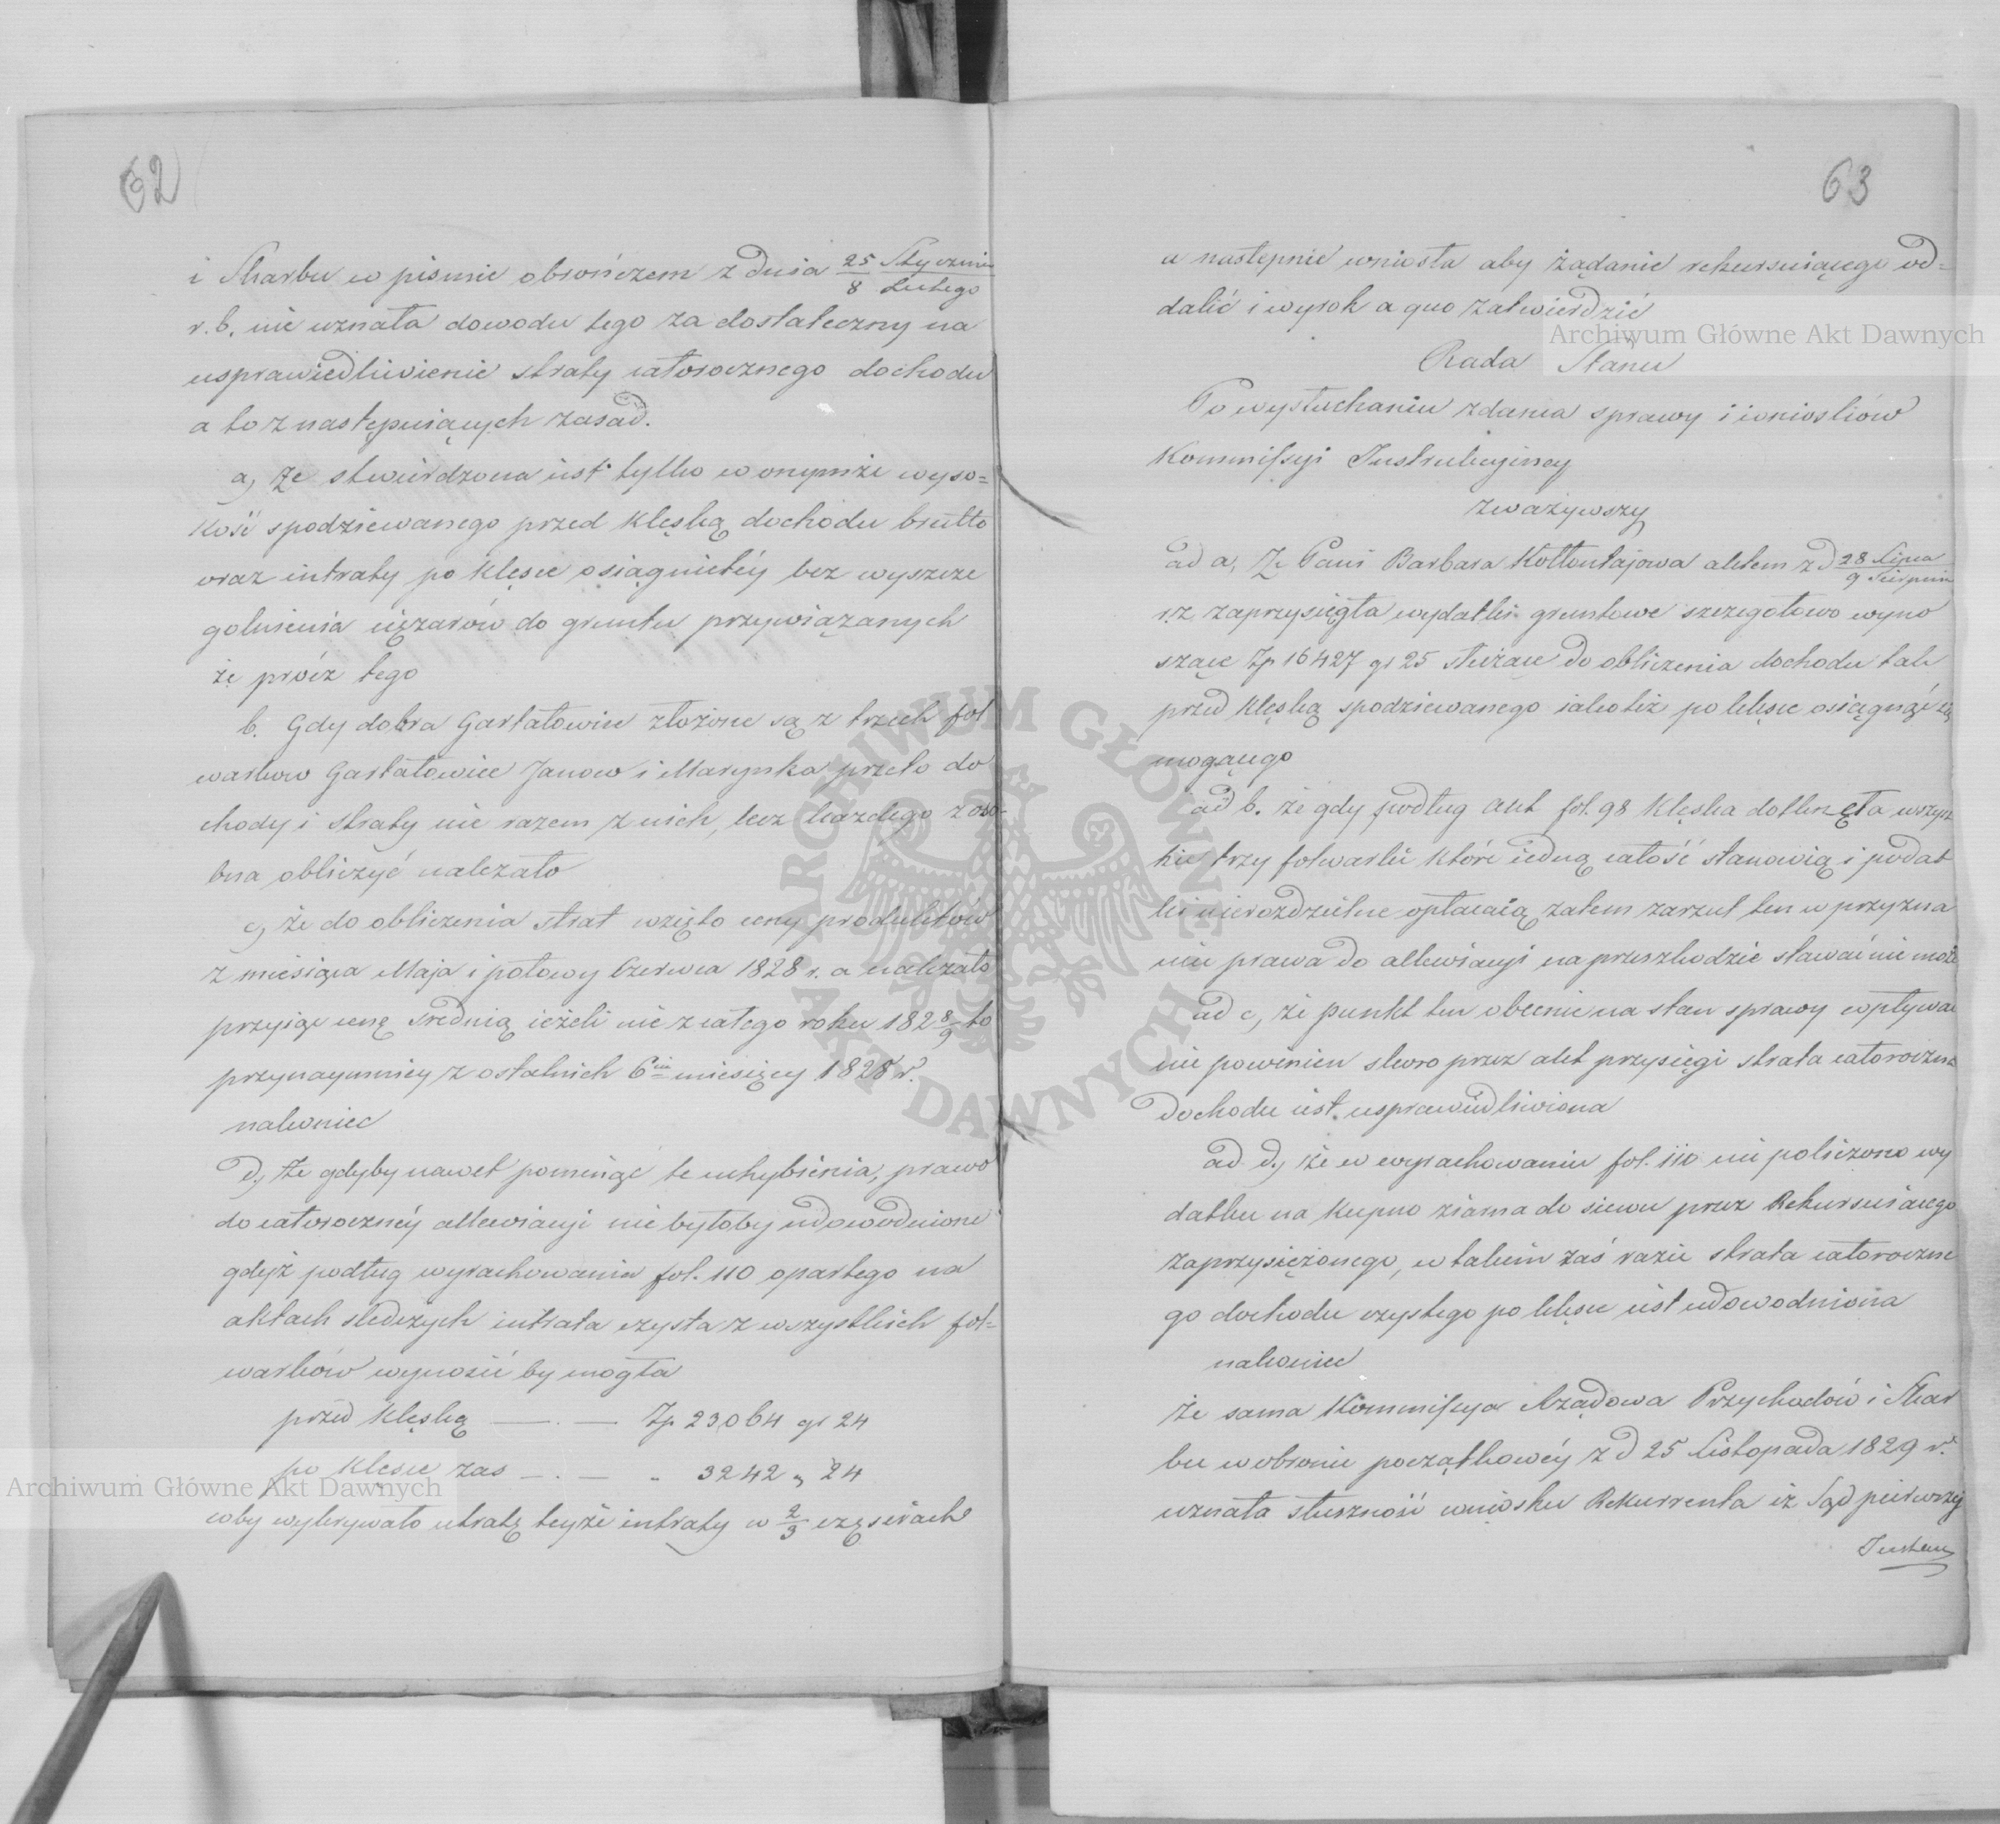 62
i Skarbu w pismie obrończem z dnia 25 Stycznia / 8 Lutego
r. b. nie uznała dowodu tego za dostateczny na
usprawiedliwienie straty całorocznego dochodu
a to z następuiących zasad.
a, Że stwierdzona iest tylko w onymże wyso=
kość spodziewanego przed klęską dochodu brutto
oraz intraty po klęsce osiągniętéy bez wyszcze
gólnienia ciężarów do gruntu przywiązanych
że prócz tego
b. Gdy dobra Gartatowice złożone są z trzech fol
warków Gartatowice Janow i Marynka przeto do
chody i straty nie razem z nich, lecz każdego z oso=
bna obliczyć należało
c, że do obliczenia strat wzięto ceny produktów
z miesiąca Maja i połowy Czerwca 1828 r. a należało
przyiąć cenę średnią ieżeli nie z całego roku 1828/9 to
przynaymniey z ostatnich 6ciu miesięcy 1828 r.
nakoniec
d, Że gdyby nawet pominąć te uchybienia, prawo
do całorocznéy allewiacyi nie byłoby udowodnione
gdyż podług wyrachowania fol. 110 opartego na
aktach śledczych intrata czysta z wszystkich fol=
warków wynosić by mogła
przed klęską —.— Zp 23064 gr 24
po klęsce zaś —.— „ 3242 „ 24
coby wykrywało utratę teyże intraty w 2/3 częściach
63
a następnie wniosła aby żądanie rekursuiącego od=
dalić i wyrok a quo zatwierdzić
Rada Stanu
Po wysłuchaniu zdania sprawy i wniosków
Kommissyi Instrukcyiney
zważywszy
ad a, Że Pani Barbara Kołłontajowa aktem z d 28 Lipca / 9 Sierpnia
r. z. zaprzysięgła wydatki gruntowe szczegółowo wyno
szące Zp 16427 gr 25 służące do obliczenia dochodu tak
przed klęską spodziewanego iakoteż po klęsce osiągnąć się
mogącego
ad b. że gdy podług akt fol. 98 klęska dotknęła wszyst
kie trzy folwarki które iedną całość stanowią i podat
ki nierozdzielne opłacaią, zatem zarzut ten w przyzna
niu prawa do allewiacyi na przeszkodzie stawać nie może
ad c, że punkt ten obecnie na stan sprawy wpływać
nie powinien skoro przez akt przysięgi strata całoroczna
dochodu iest usprawiedliwiona
ad d, że w wyrachowaniu fol. 110 nie policzono wy
datku na kupno ziarna do siewu przez Rekursuiącego
zaprzysiężonego, w takim zaś razie strata całoroczne
go dochodu czystego po klęsce iest udowodniona
nakoniec
że sama Kommissya Rządowa Przychodów i Skar
bu w obronie początkowéy z d 25 Listopada 1829 r.
uznała słuszność wniosku Rekurrenta iż Sąd pierwszéy
Instan
Archiwum Główne Akt Dawnych
Archiwum Główne Akt Dawnych
ARCHIWUM GŁÓWNE AKT DAWNYCH